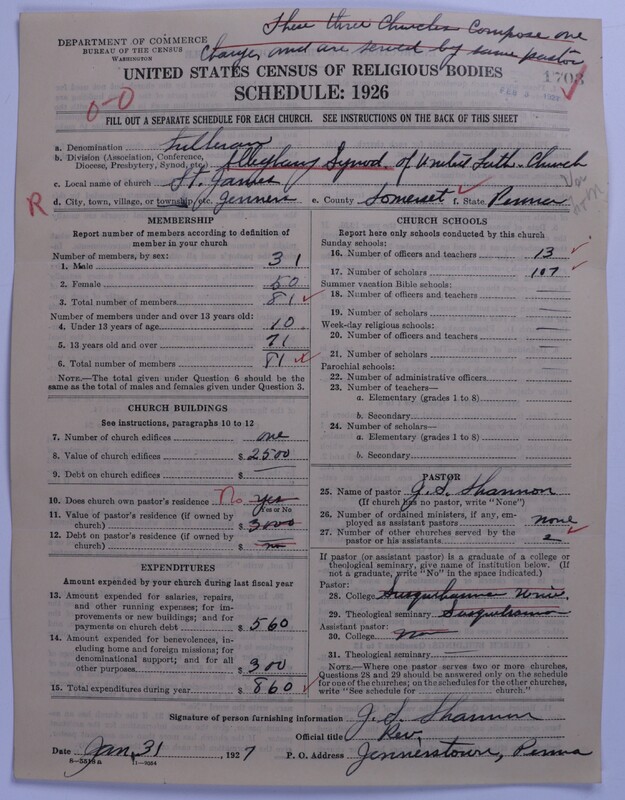 These three Churches Compose one
Charge, and are served by same pastor
DEPARTMENT OF COMMERCE
BUREAU OF THE CENSUS
WASHINGTON
UNITED STATES CENSUS OF RELIGIOUS BODIES
1703
SCHEDULE: 1926
0-0
FILL OUT A SEPARATE SCHEDULE FOR EACH CHURCH. SEE INSTRUCTIONS ON THE BACK OF THIS SHEET
a. Denomination Lutheran
b. Division (Association, Conference, Diocese, Presbytery, Synod, etc.) Alleghany Synod of United Luth. Church
c. Local name of church St. James
R d. City, town, village, or township, etc. Jenners e. County Somerset f. State Penna
MEMBERSHIP
Report number of members according to definition of member in your church
Number of members, by sex:
1. Male 31
2. Female 50
3. Total number of members 81
Number of members under and over 13 years old:
4. Under 13 years of age 10
5. 13 years old and over 71
6. Total number of members 81
NOTE.—The total given under Question 6 should be the same as the total of males and females given under Question 3.
CHURCH BUILDINGS
See instructions, paragraphs 10 to 12
7. Number of church edifices one
8. Value of church edifices $ 2500
9. Debt on church edifices $ —
10. Does church own pastor's residence No yes
(Yes or No
11. Value of pastor's residence (if owned by church) $ 3000
12. Debt on pastor's residence (if owned by church) $ no
EXPENDITURES
Amount expended by your church during last fiscal year
13. Amount expended for salaries, repairs, and other running expenses; for improvements or new buildings; and for payments on church debt $ 560
14. Amount expended for benevolences, including home and foreign missions; for denominational support; and for all other purposes $ 300
15. Total expenditures during year $ 860
CHURCH SCHOOLS
Report here only schools conducted by this church
Sunday schools:
16. Number of officers and teachers 13
17. Number of scholars 107
Summer vacation Bible schools:
18. Number of officers and teachers
19. Number of scholars —
Week-day religious schools:
20. Number of officers and teachers
21. Number of scholars —
Parochial schools:
22. Number of administrative officers
23. Number of teachers—
a. Elementary (grades 1 to 8)
b. Secondary
24. Number of scholars—
a. Elementary (grades 1 to 8)
b. Secondary
PASTOR
25. Name of pastor J. S. Shannon
(If church has no pastor, write "None")
26. Number of ordained ministers, if any, employed as assistant pastors none
27. Number of other churches served by the pastor or his assistants 2
If pastor (or assistant pastor) is a graduate of a college or theological seminary, give name of institution below. (If not a graduate, write "No" in the space indicated.)
Pastor:
28. College Susquehanna Univ.
29. Theological seminary Susquehanna
Assistant pastor:
30. College No
31. Theological seminary —
NOTE.—Where one pastor serves two or more churches, Questions 28 and 29 should be answered only on the schedule for one of the churches; on the schedules for the other churches, write "See schedule for ........ church."
Signature of person furnishing information J. S. Shannon
Official title Rev.
Date Jan. 31, 1927 P. O. Address Jennerstown, Penna
8-5519a 11-9264